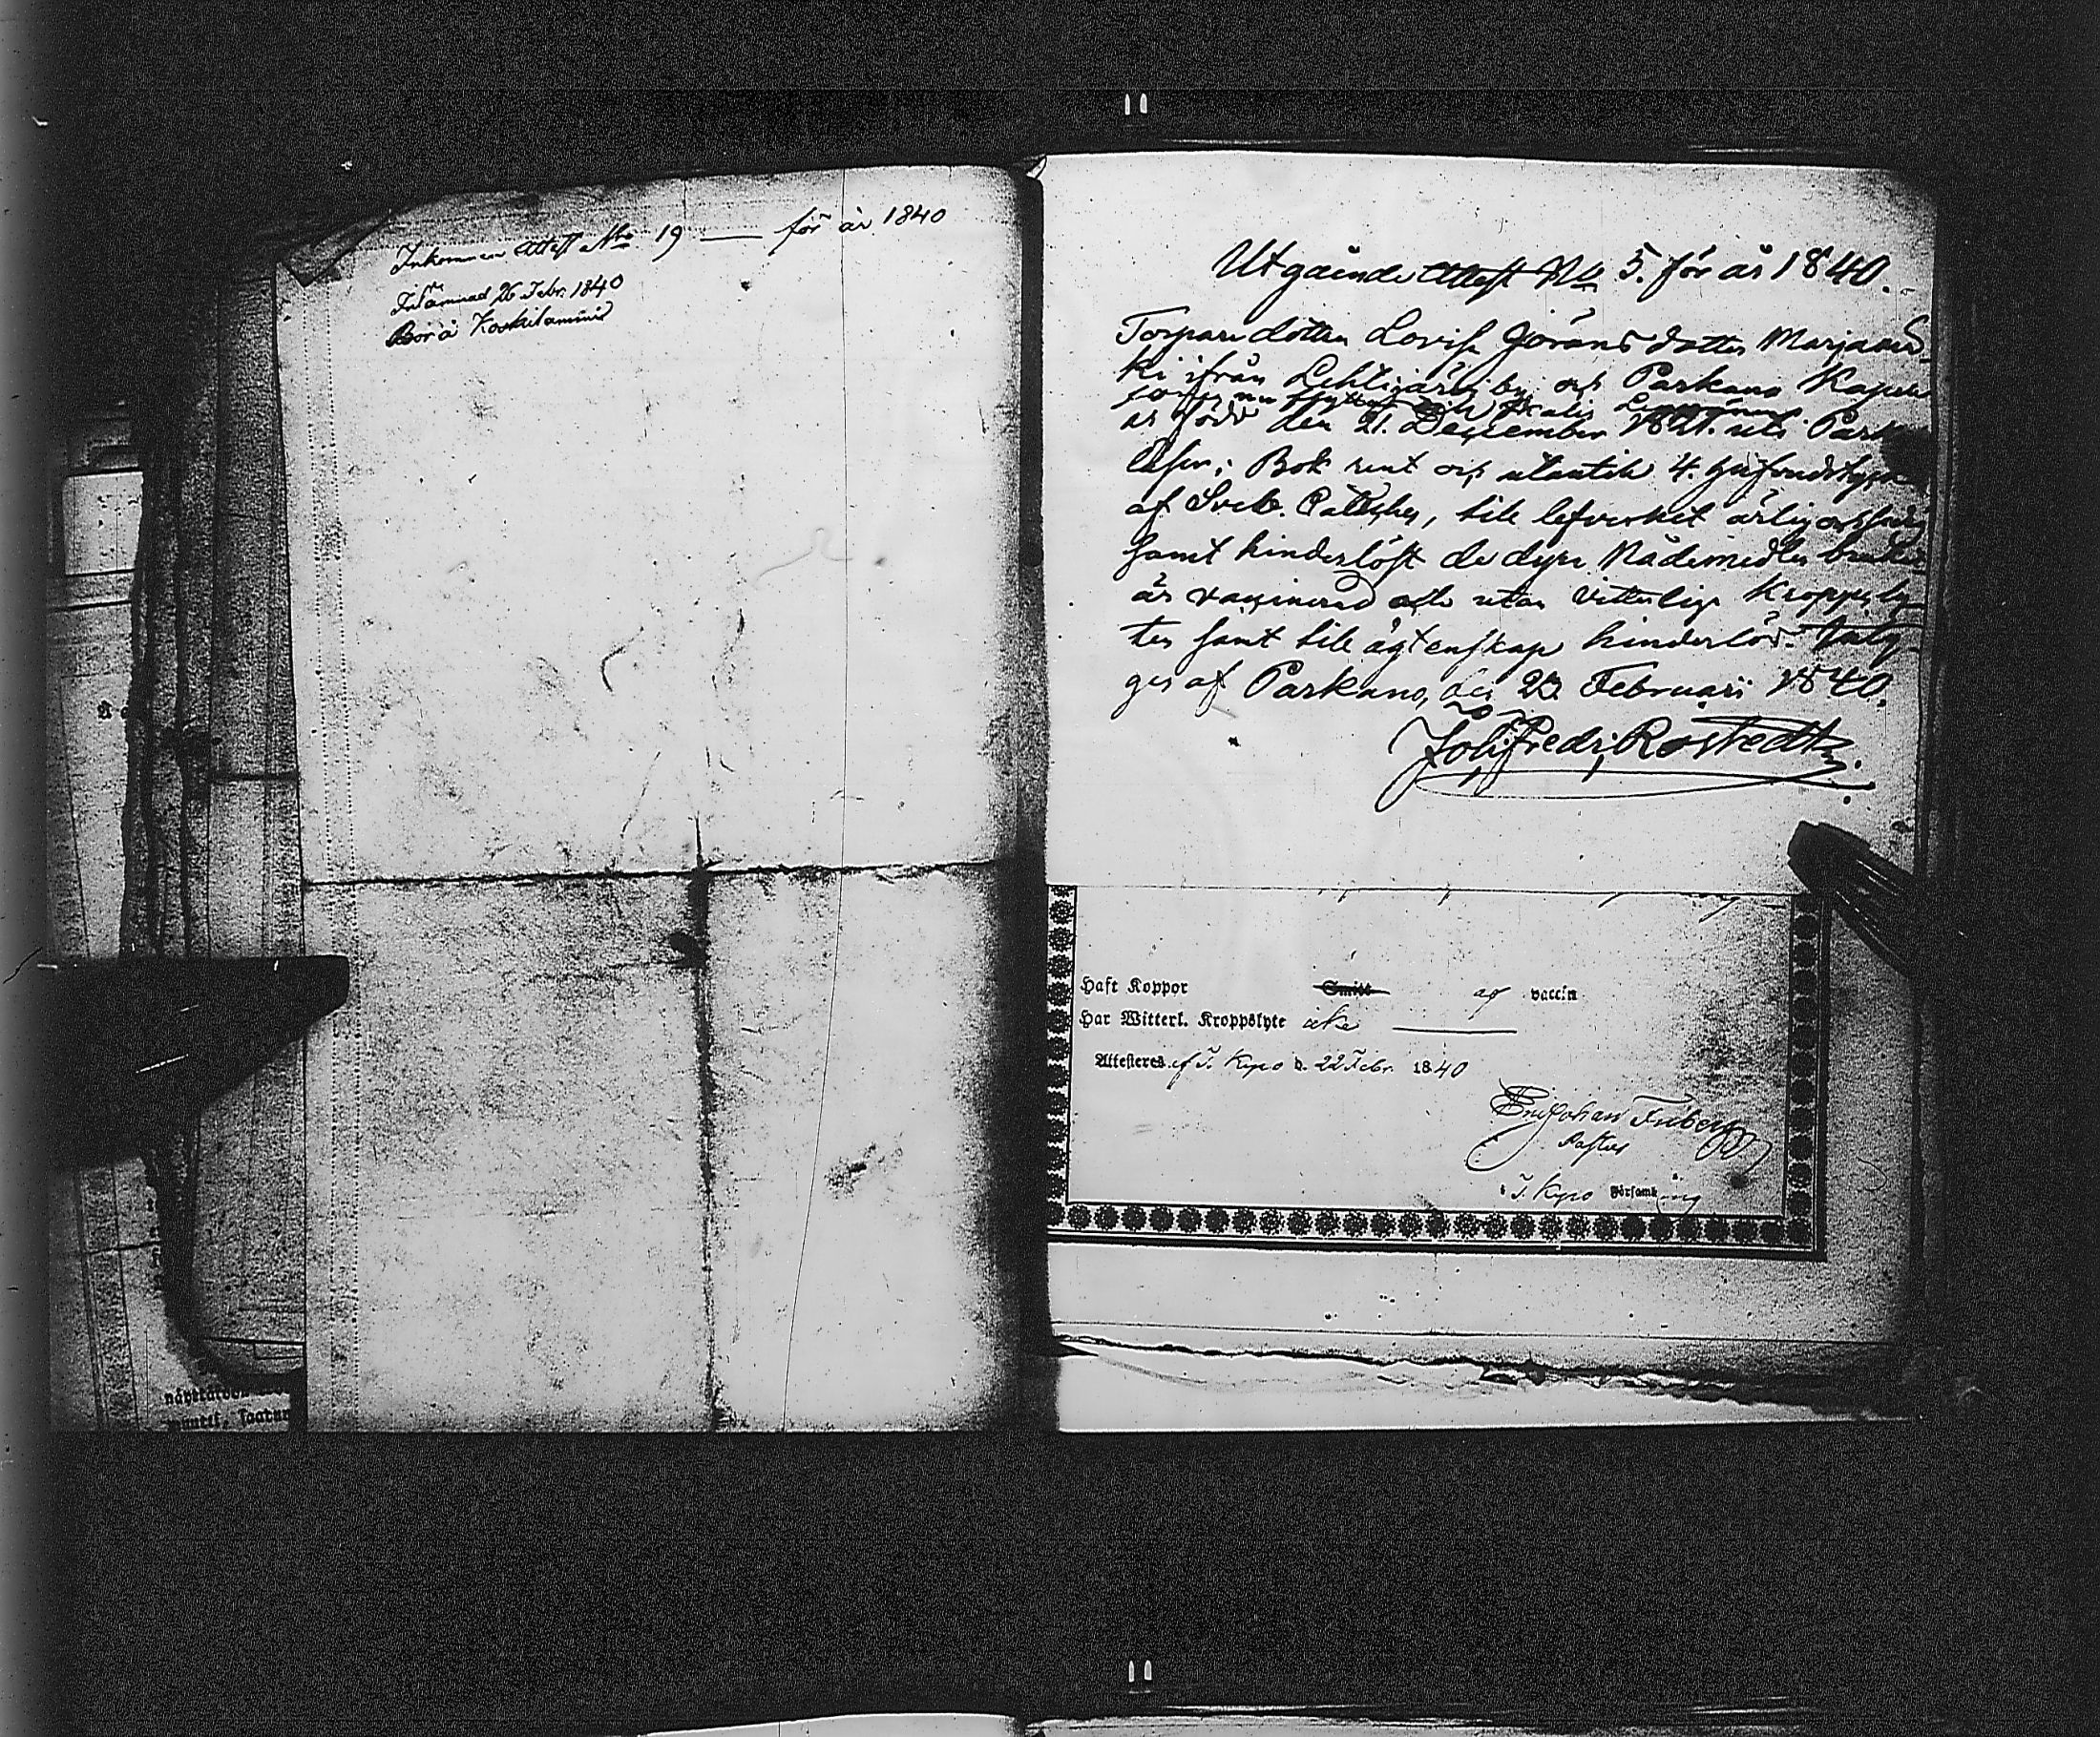 Inkommen Attest No 19 — för år 1840
Inlämnad 26 Febr. 1840
Bor å Koskilammi
Utgående Attest No 5. för år 1840.
Torparedottren Lovisa Görans dotter Marjamä-
ki ifrån Lehtijärvi by och Parkano Kapell
är född den 21. December 1821. uti Park
läser i Bok rent och utantill 4. hufvudstycken
af Sveb. Cateches, till lefvernet ärlig och
samt hinderlöst de dyra Nådemedlen brukar
är vaccinerad och utan vitterliga Kroppsly-
ten samt till ägtenskap hinderlös. Intyg-
ges af Parkano, den 23 Februari 1840.
Joh: Fredr: Rostedt
Haft Koppor Smitt af vaccin
Har Witterl. Kroppslyte icke
Attesteres af T. Kyro d. 22 Febr. 1840
Johan Friberg
Pastor
i T. Kyro Församling